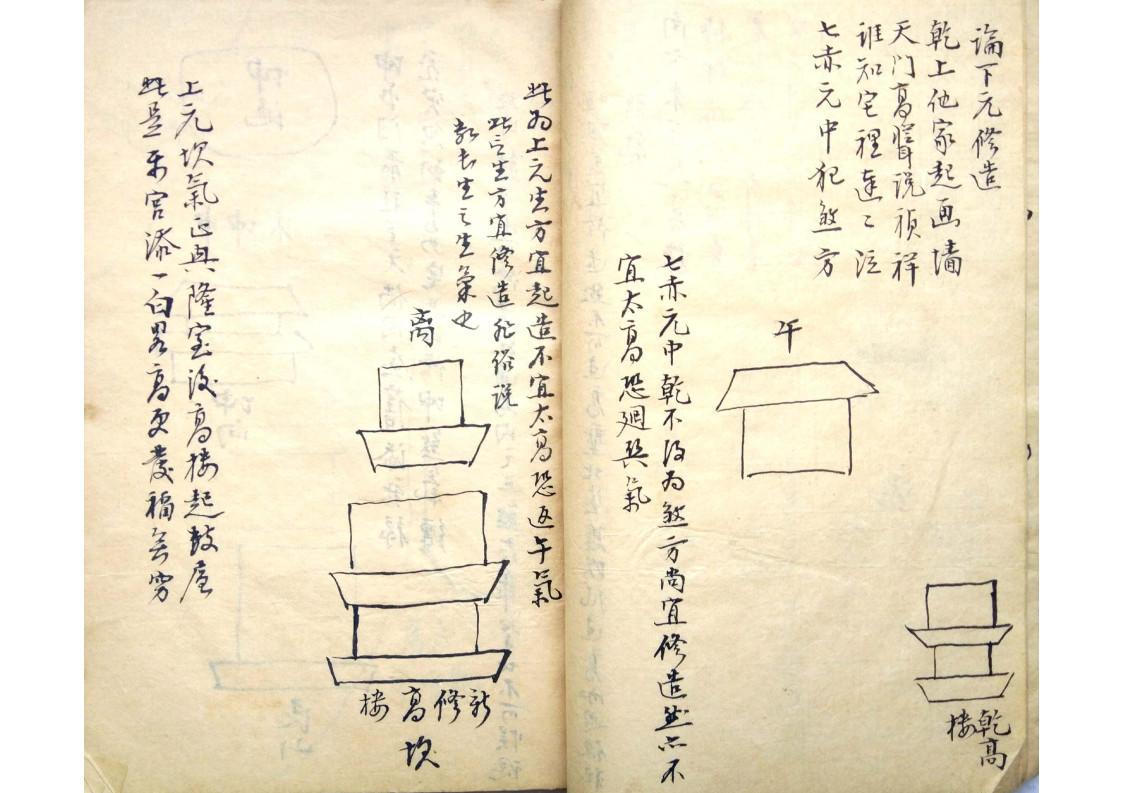 論下元修造
乾上他家起画墙
天门高聳说祯祥
谁知宅裡連〻泣
七赤元中犯煞方
午
乾高
楼
七赤元中乾不没为煞方尚宜修造然亦不
宜太高恐廻巽氣
此为上元生方宜起造不宜太高恐返午氣
此言生方宜修造 俗说
长生之生氣也
离
新修高楼
坎
上元坎氣正興隆宅後高楼起鼓
此是 宫添一白 高更發福无穷